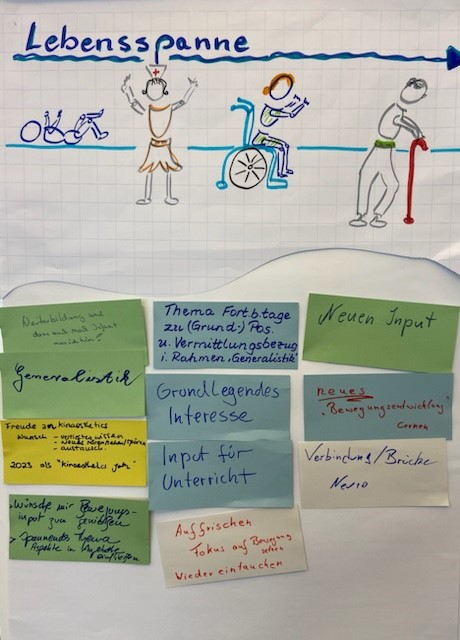 Lebensspanne
Weiterbildung und
Generalistik
Freude an Kinaesthetics
Wunsch - vertieftes Wissen
- austausch.
2023 als "Kinaesthetics Jahr"
Wünsche mir Bewegungs-
input zum genießen
Spannendes Thema
Aspekte in
Thema Fortb'tage
zu (Grund-) Pos.
u. Vermittlungsbezug
i. Rahmen „Generalistik"
GrundLegendes
Interesse
Input für
Unterricht
Auffrischen
Fokus auf Bewegung
setzen
Wieder eintauchen
Neuen Input
neues
„Bewegungsentwicklung"
Lernen
Verbindung/Brücke
Neuro